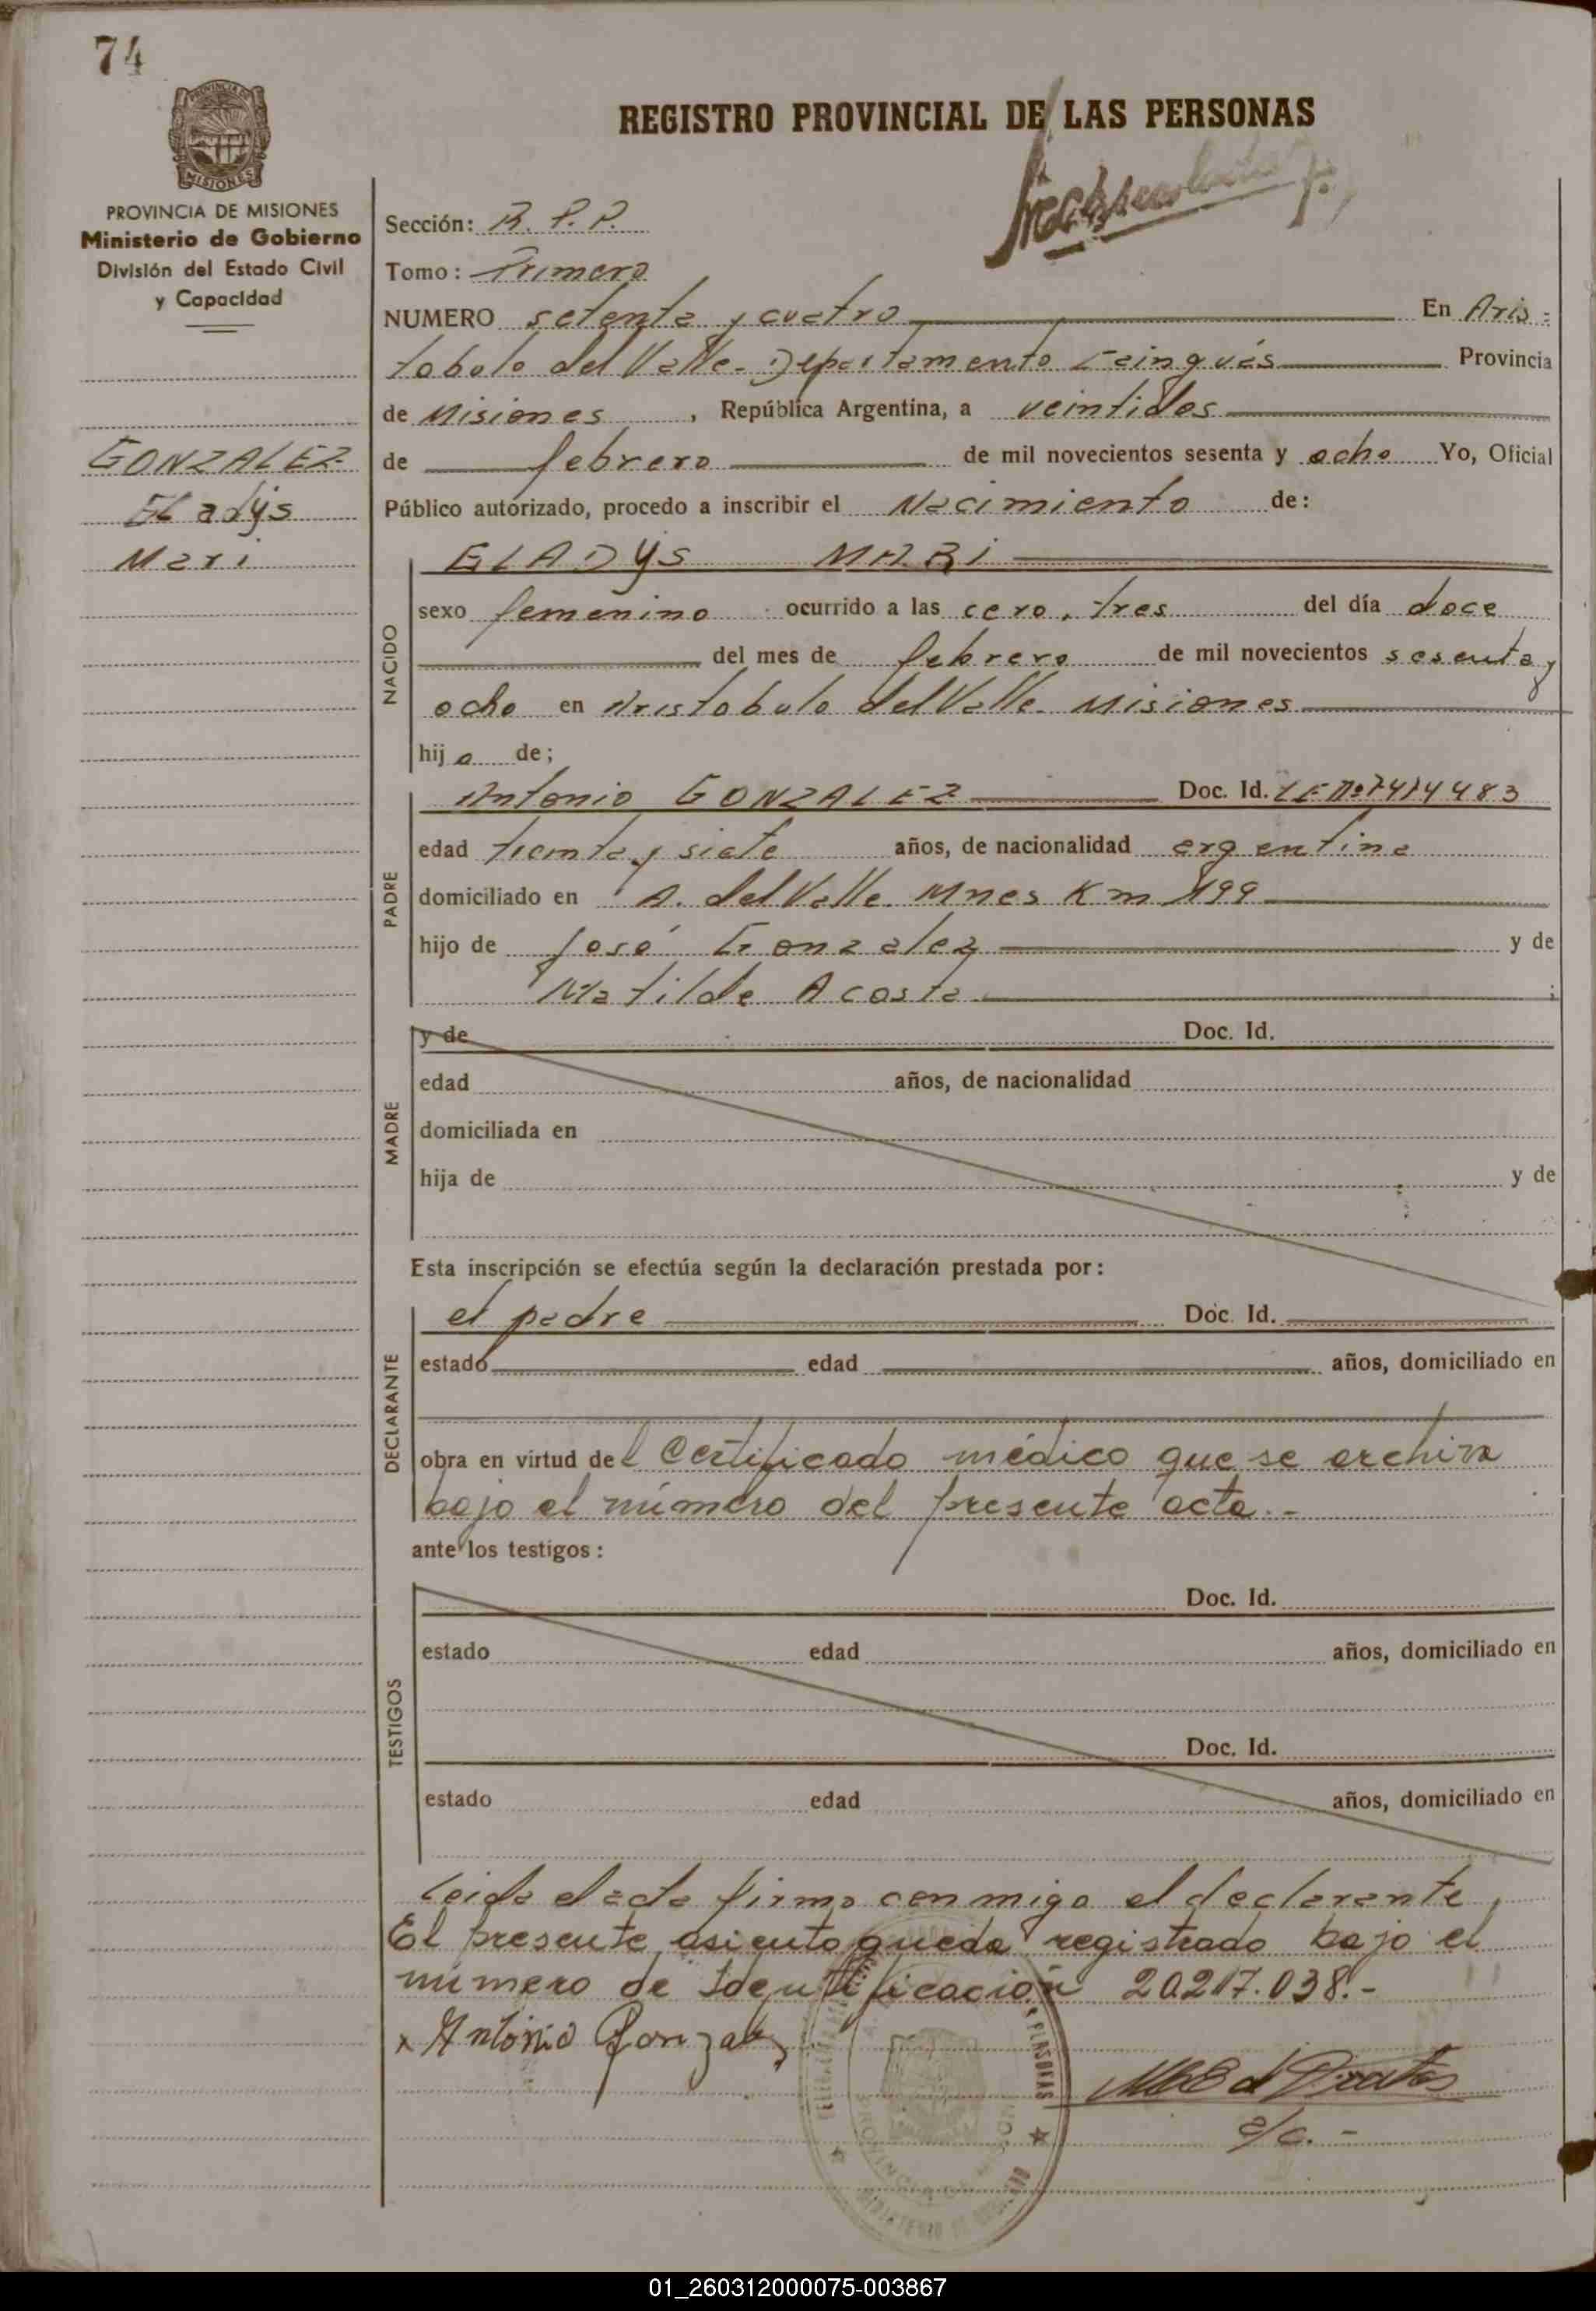 74
PROVINCIA DE MISIONES
Ministerio de Gobierno
División del Estado Civil
y Capacidad
GONZALEZ
ELadys
Mari
REGISTRO PROVINCIAL DE LAS PERSONAS
Sección: R. P. P.
Tomo: Primero
NUMERO setenta y cuatro En Aris=
tobulo del Valle. Departamento Cainguás Provincia
de Misiones, República Argentina, a veintidos
de febrero de mil novecientos sesenta y ocho Yo, Oficial
Público autorizado, procedo a inscribir el Nacimiento de:
NACIDO
ELADYS MARI
sexo femenino ocurrido a las cero, tres del día doce
del mes de febrero de mil novecientos sesenta y
ocho en Aristobulo del Valle. Misiones
hija de;
PADRE
Antonio GONZALEZ Doc. Id. LE Nº 7414483
edad treinta y siete años, de nacionalidad argentina
domiciliado en A. del Valle. Mnes Km 199
hijo de José Gonzalez y de
Matilde Acosta ;
MADRE
y de Doc. Id.
edad años, de nacionalidad
domiciliada en
hija de y de
Esta inscripción se efectúa según la declaración prestada por:
DECLARANTE
el padre Doc. Id.
estado edad años, domiciliado en
obra en virtud del Certificado médico que se archiva
bajo el número del presente acta.-
ante los testigos:
TESTIGOS
Doc. Id.
estado edad años, domiciliado en
Doc. Id.
estado edad años, domiciliado en
Leida el acta firma conmigo el declarante,
El presente asiento queda registrado bajo el
número de Identificación 20.217.038.-
x Antonio Gonzalez
a/c.-
01_260312000075-003867